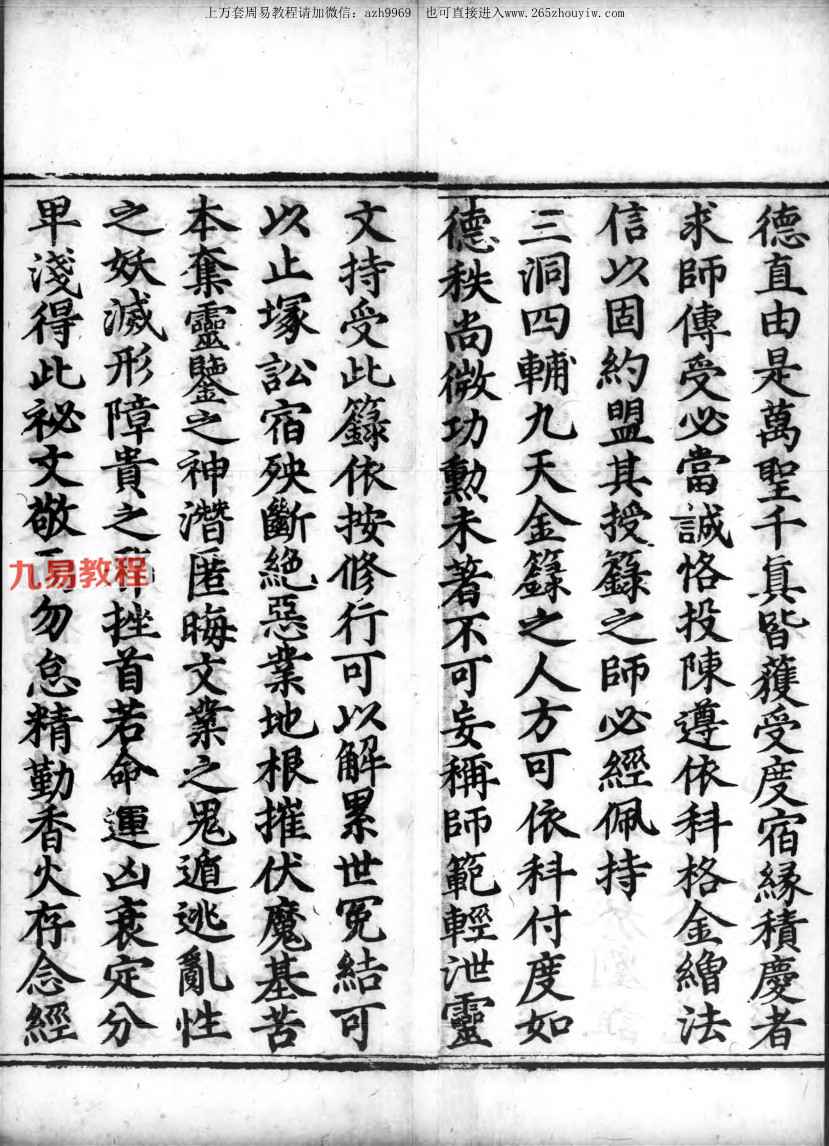 上万套周易教程请加微信：azh9969 也可直接进入www.265zhouyiw.com
德直由是萬聖千眞皆蒦受度宿緣積慶者
求師傳受必當誠恪投陳遵依科格金繒法
信以固約盟其授籙之師必經佩持
三洞四輔九天金籙之人方可依科付度如
德秩尚微功勲未著不可妄稱師範輕泄靈
文持受此籙依按修行可以解累世冤結可
以止塚訟宿殃斷絕惡業地根摧伏魔基苦
本奪靈鑒之神潛匿晦文業之鬼遁逃亂性
之妖滅形障貴之挫首若命運凶衰定分
甲淺得此祕文敬勿怠精勤香火存念經
九易教程